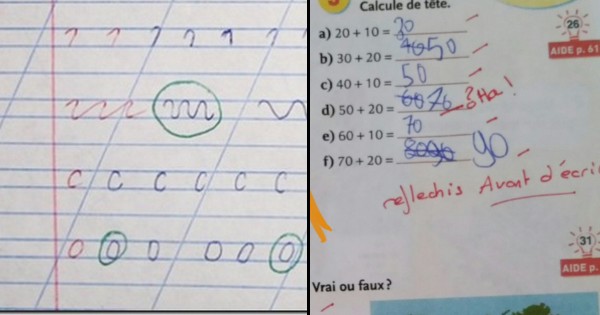 ı ı ı ı ı ı
c c c c c c
o o o o o o
Calcule de tête.
26
AIDE p. 61
a) 20 + 10 = 30
b) 30 + 20 = 40 50
c) 40 + 10 = 50
d) 50 + 20 = 60 70
e) 60 + 10 = 70
f) 70 + 20 = 90
reflechis Avant d'écri
31
AIDE p.
Vrai ou faux ?